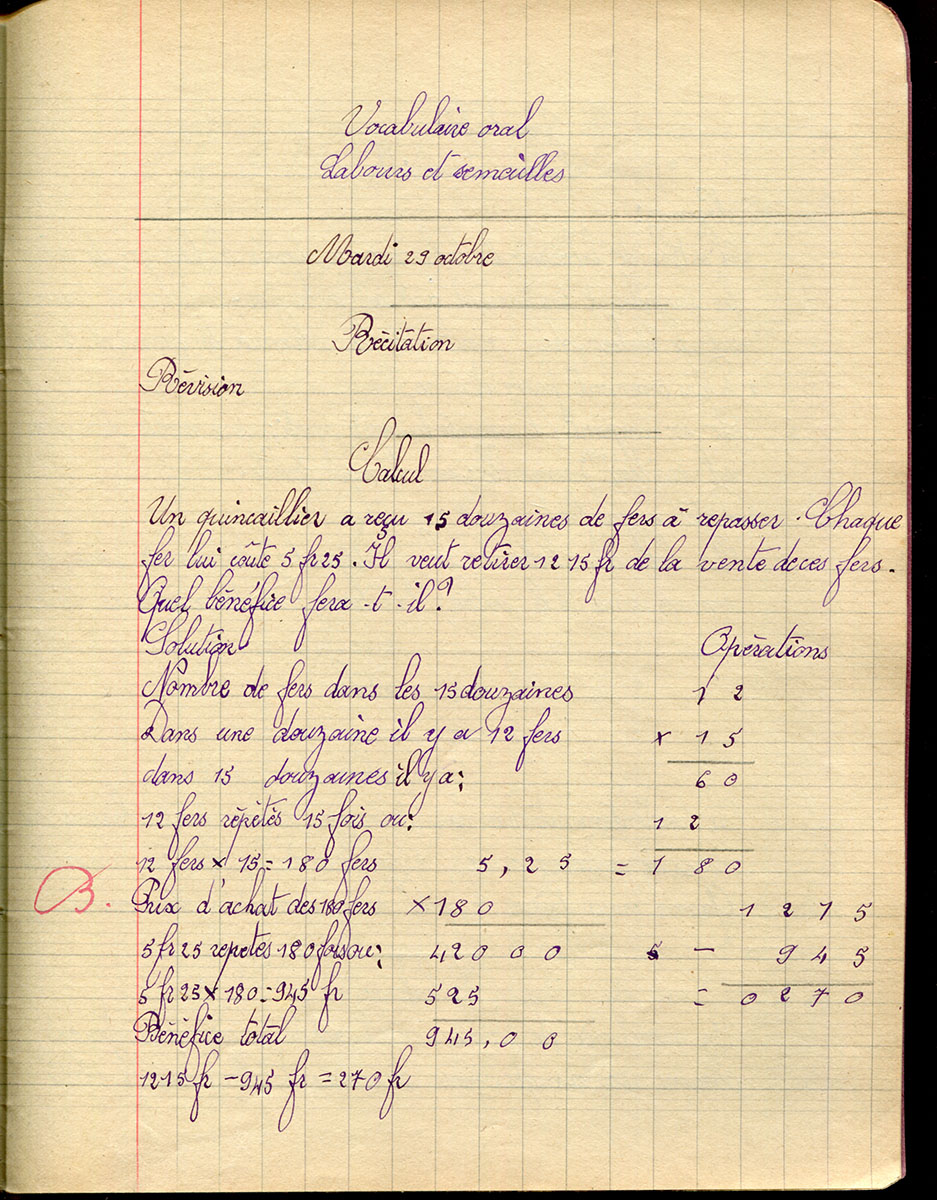 Vocabulaire oral
Labours et semailles
Mardi 29 octobre
Récitation
Révision
Calcul
Un quincaillier a reçu 15 douzaines de fers à repasser. Chaque
fer lui coûte 5 fr 25. Il veut retirer 12 15 fr de la vente de ces fers.
Quel bénéfice fera-t-il?
Solution Opérations
Nombre de fers dans les 15 douzaines 1 2
Dans une douzaine il y a 12 fers × 1 5
dans 15 douzaines il y a: 6 0
12 fers répétés 15 fois ou: 1 2
12 fers × 15 = 180 fers 5,25 = 1 8 0
B. Prix d'achat des 180 fers ×180 1 2 7 5
5 fr 25 repetés 180 fois ou: 420 0 0 5 - 9 4 5
5 fr 25 × 180 = 945 fr 525 = 0 2 7 0
Bénéfice total 945,0 0
1215 fr - 945 fr = 270 fr